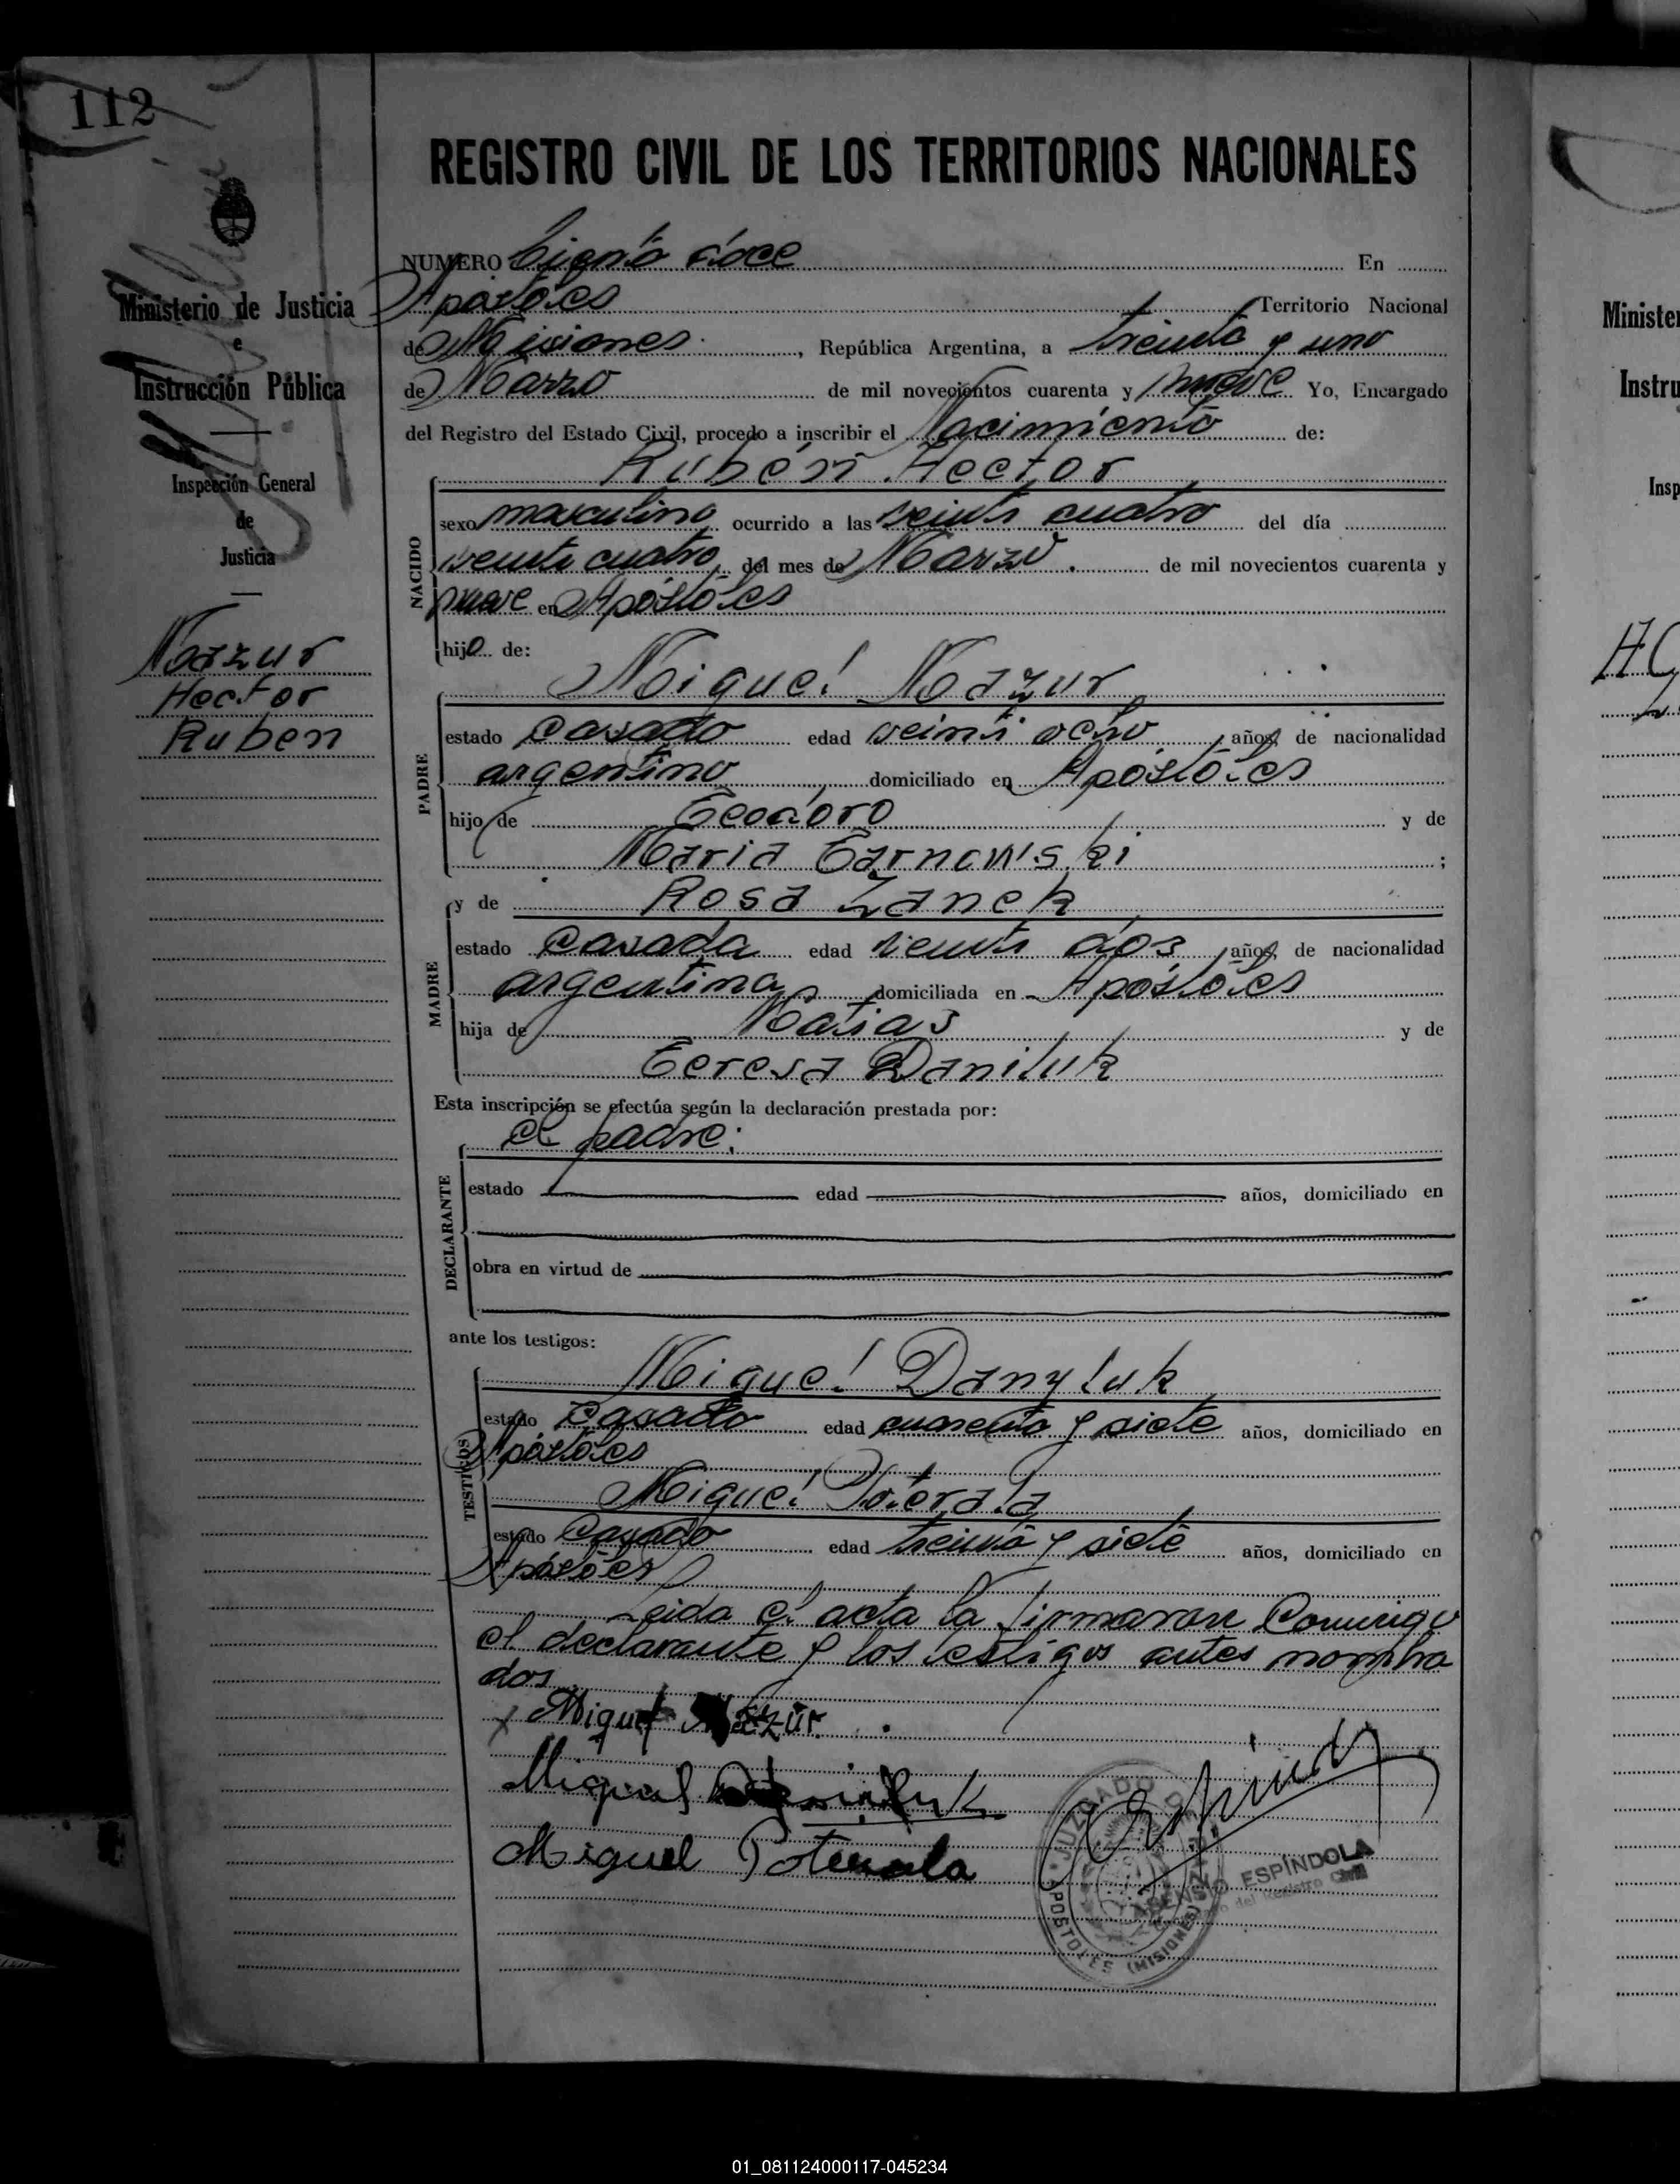 112
REGISTRO CIVIL DE LOS TERRITORIOS NACIONALES
NUMERO Ciento doce En
Apóstoles Territorio Nacional
de Misiones, República Argentina, a treinta y uno
de Marzo de mil novecientos cuarenta y nueve Yo, Encargado
del Registro del Estado Civil, procedo a inscribir el Nacimiento de:
Ministerio de Justicia
e
Instrucción Pública
Inspección General
de
Justicia
Mazur
Hector
Ruben
NACIDO
Rubén Hector
sexo masculino ocurrido a las veinti cuatro del día
veinti cuatro del mes de Marzo de mil novecientos cuarenta y
nueve en Apóstoles
hijo de:
PADRE
Miguel Mazur
estado casado edad veinti ocho años, de nacionalidad
argentino domiciliado en Apóstoles
hijo de Teodoro y de
Maria Tarnowski ;
MADRE
y de Rosa Zanek
estado casada edad veinti dos años, de nacionalidad
argentina domiciliada en Apóstoles
hija de Matias y de
Teresa Daniluk
Esta inscripción se efectúa según la declaración prestada por:
DECLARANTE
el padre:
estado edad años, domiciliado en
obra en virtud de
ante los testigos:
TESTIGOS
Miguel Danyluk
estado Casado edad cuarenta y siete años, domiciliado en
Apóstoles
Miguel Poterala
estado Casado edad treinta y siete años, domiciliado en
Apóstoles
Leida el acta la firmaron Conmigo
el declarante y los testigos antes nombra
dos
x Miguel Mazur.
Miguel Daniluk
Miguel Poterala
JUZGADO DE PAZ
APOSTOLES (MISIONES)
ASENSIO ESPÍNDOLA
del Registro Civil
Ministe
Instru
Insp
01_081124000117-045234